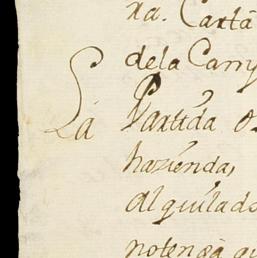 xa. Carta
dela Camp
La Partida o
hazienda,
alquilado
notenga qu